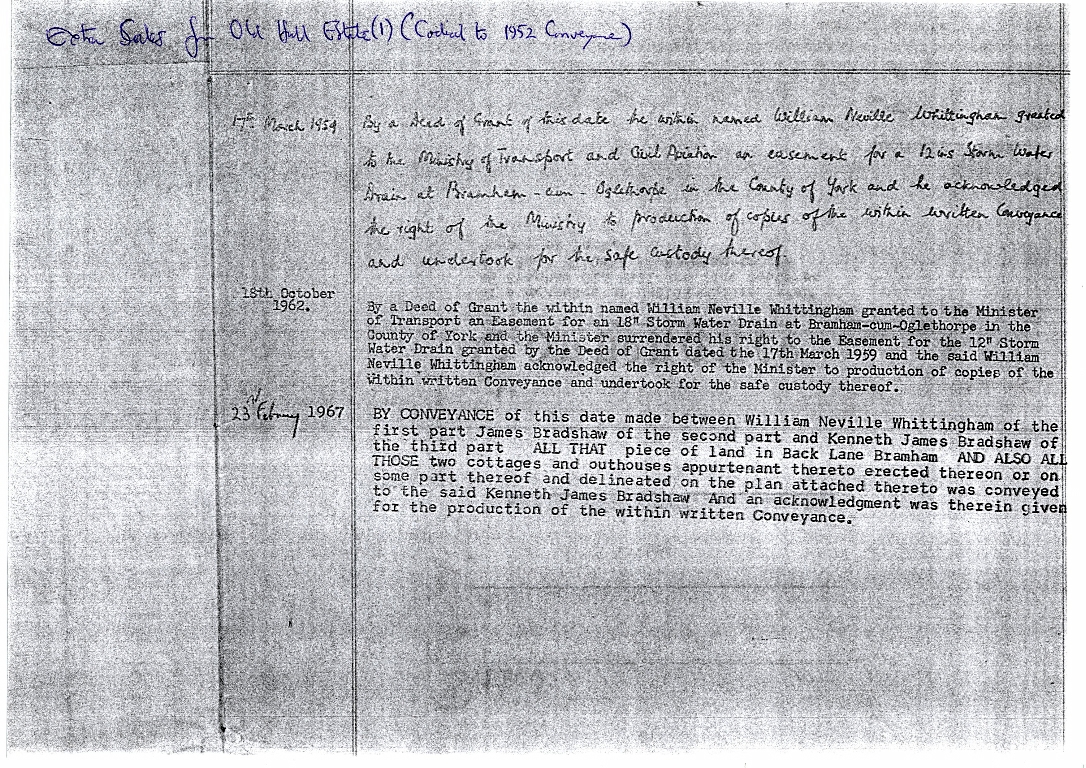 Extra Sales for Old Hall Estate (1) (Codicil to 1952 Conveyance)
17th March 1959
By a Deed of Grant of this date the within named William Neville Whittingham granted
to the Ministry of Transport and Civil Aviation an easement for a 12 ins Storm Water
Drain at Bramham-cum-Oglethorpe in the County of York and he acknowledged
the right of the Ministry to production of copies of the within written Conveyance
and undertook for the safe custody thereof.
18th October
1962.
By a Deed of Grant the within named William Neville Whittingham granted to the Minister
of Transport an Easement for an 18" Storm Water Drain at Bramham-cum-Oglethorpe in the
County of York and the Minister surrendered his right to the Easement for the 12" Storm
Water Drain granted by the Deed of Grant dated the 17th March 1959 and the said William
Neville Whittingham acknowledged the right of the Minister to production of copies of the
within written Conveyance and undertook for the safe custody thereof.
23 February 1967
BY CONVEYANCE of this date made between William Neville Whittingham of the
first part James Bradshaw of the second part and Kenneth James Bradshaw of
the third part ALL THAT piece of land in Back Lane Bramham AND ALSO ALL
THOSE two cottages and outhouses appurtenant thereto erected thereon or on
some part thereof and delineated on the plan attached thereto was conveyed
to the said Kenneth James Bradshaw And an acknowledgment was therein given
for the production of the within written Conveyance.